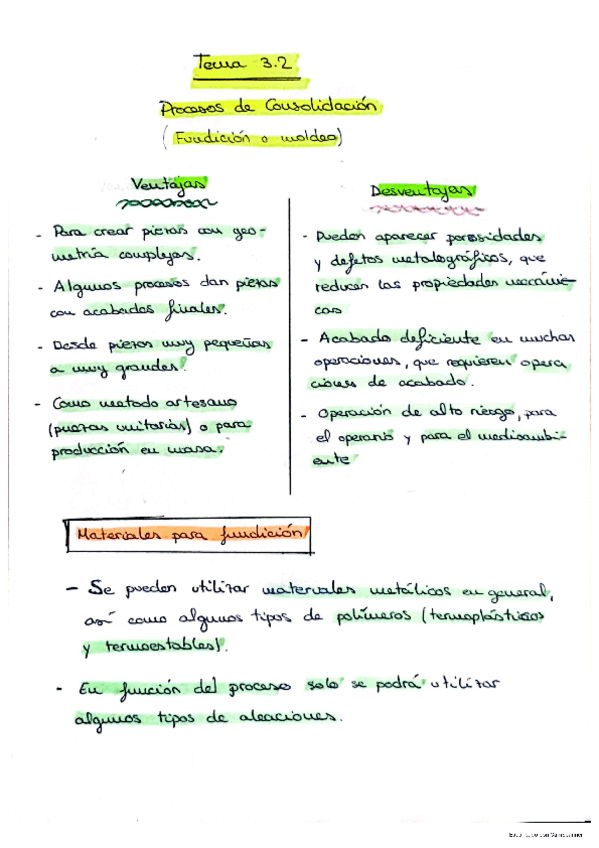 Tema 3.2
Procesos de Consolidación
(Fundición o moldeo)
Ventajas
- Para crear piezas con geo-
metría complejas.
- Algunos procesos dan piezas
con acabados finales.
- Desde piezas muy pequeñas
a muy grandes.
- Como metodo artesano
(piezas unitarias) o para
producción en masa.
Desventajas
- Pueden aparecer porosidades
y defectos metalográficos, que
reducen las propiedades mecáni-
cas
- Acabado deficiente en muchas
operaciones, que requieren opera
ciones de acabado.
- Operación de alto riesgo, para
el operario y para el medioambi-
ente
Materiales para fundición
- Se pueden utilizar materiales metálicos en general,
así como algunos tipos de polímeros (termoplásticos
y termoestables).
- En función del proceso solo se podrá utilizar
algunos tipos de aleaciones.